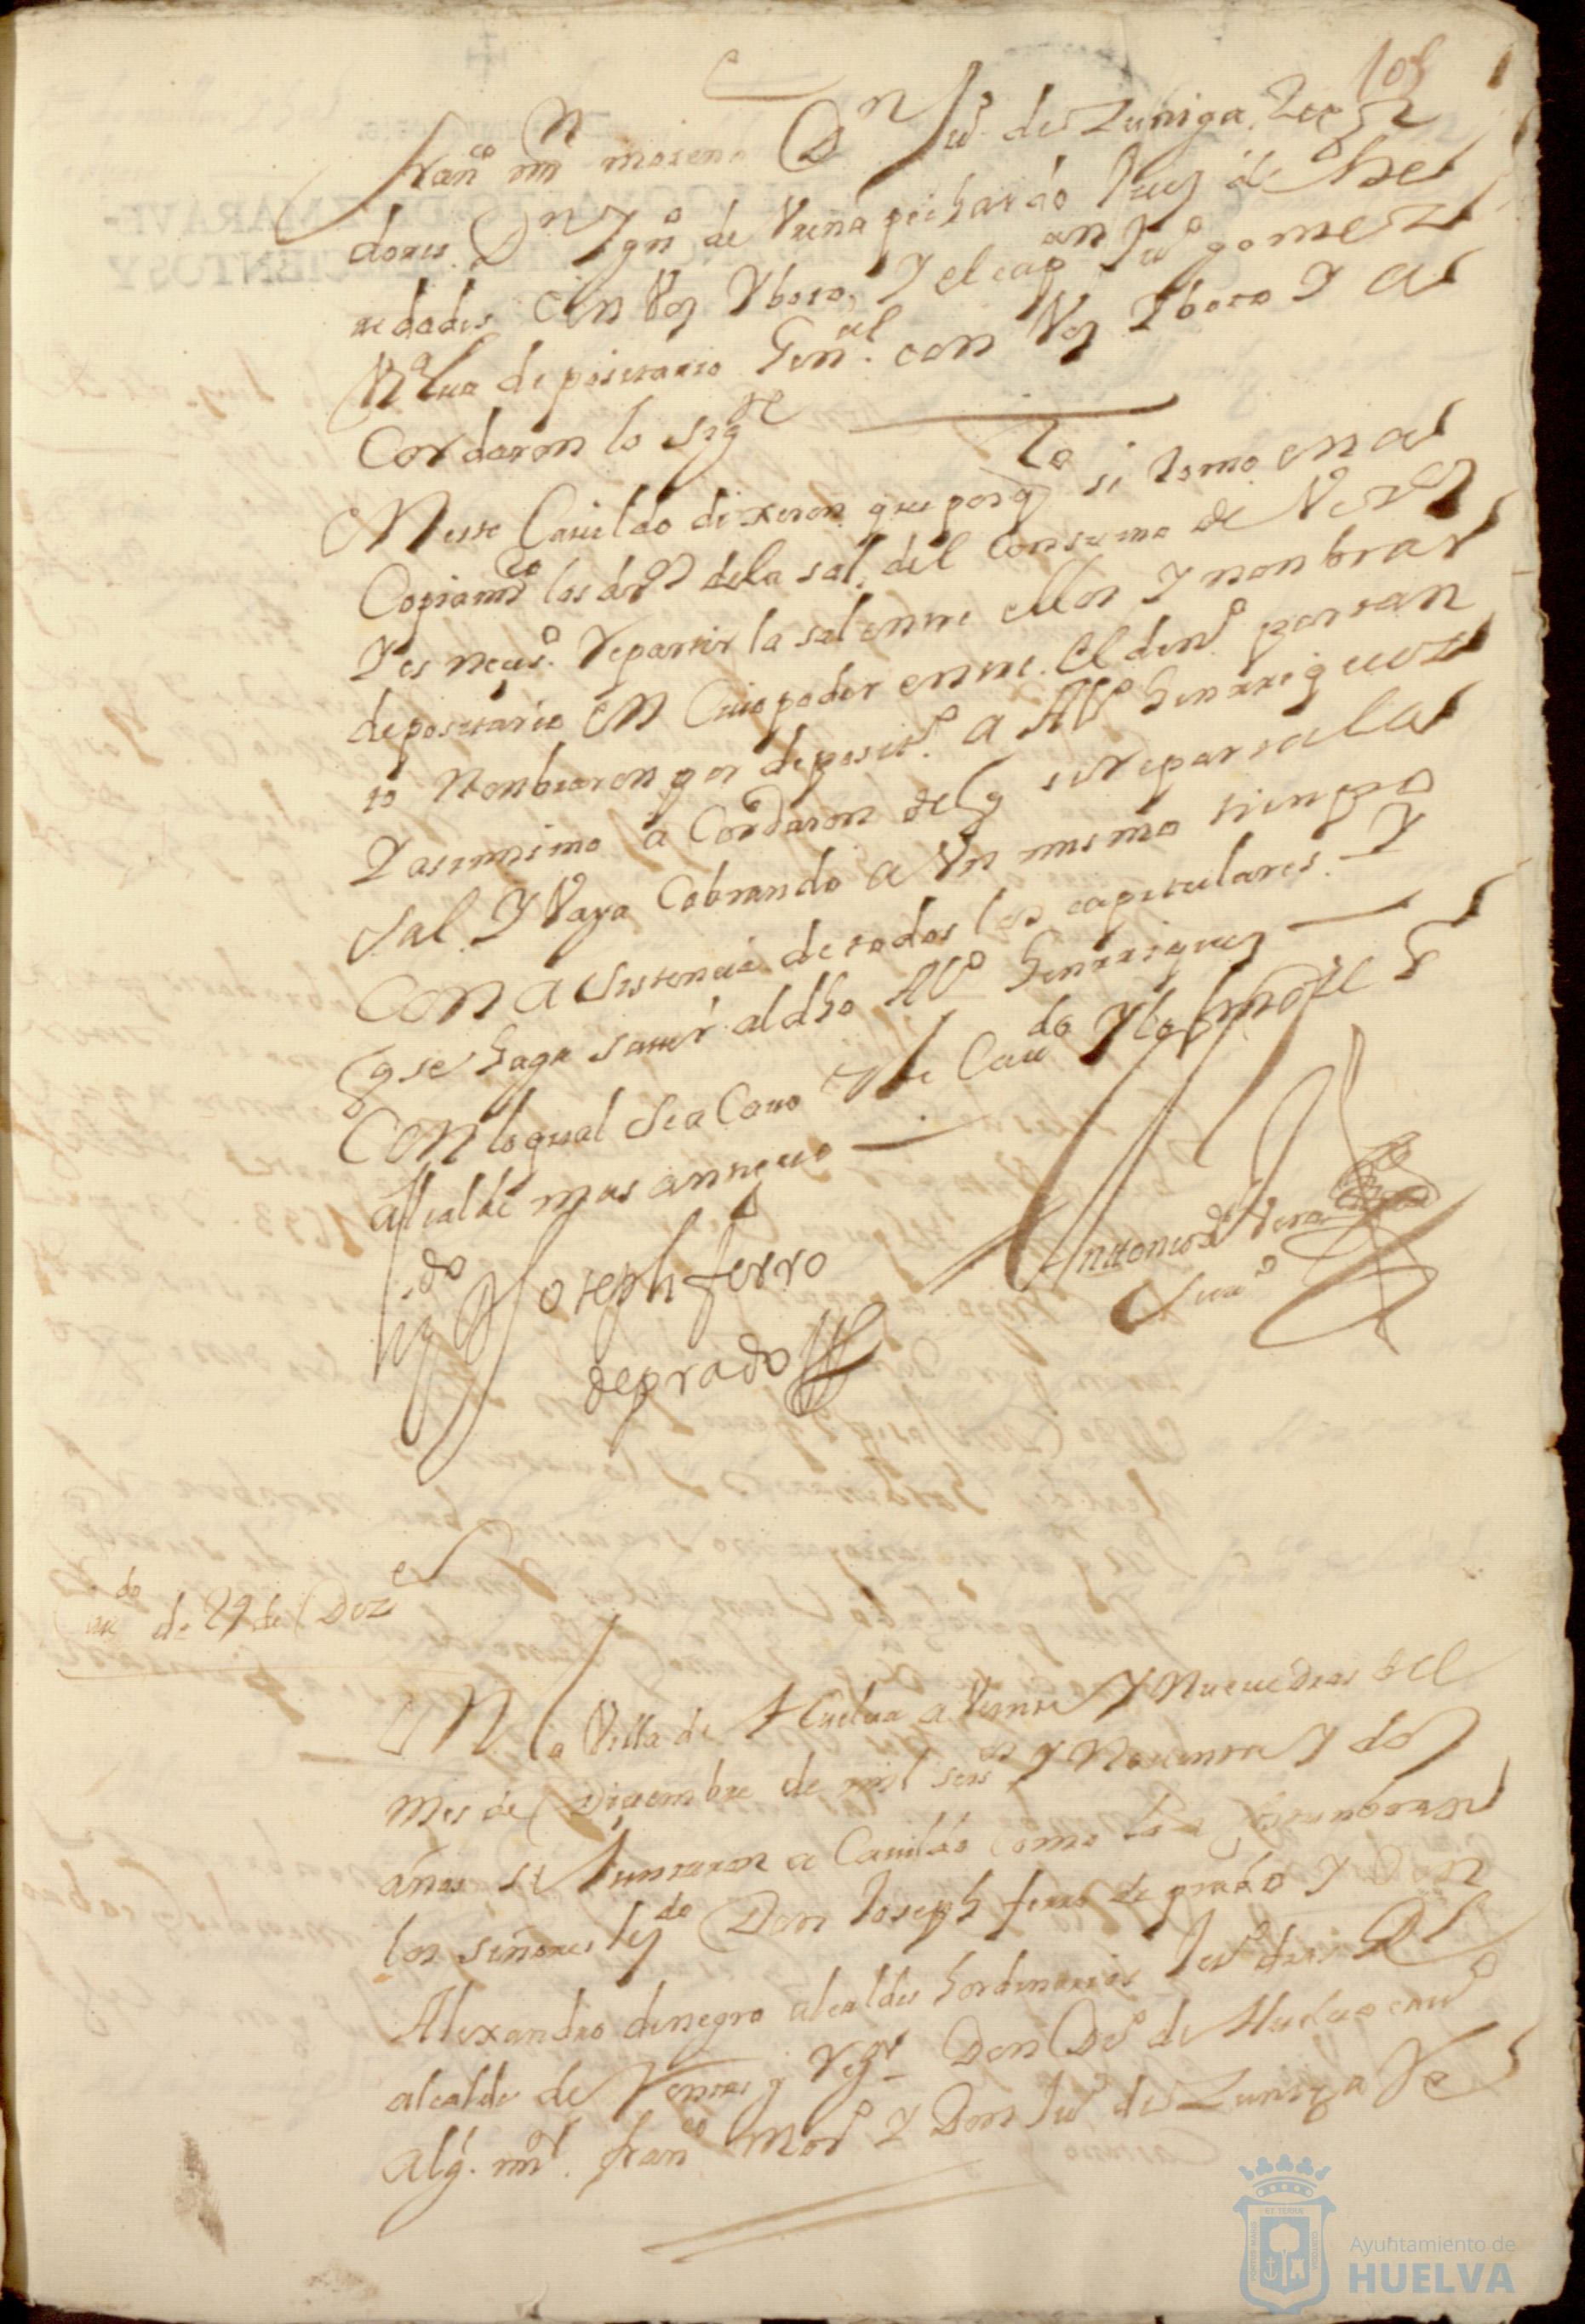 108
Fran.co min moreno Dn Ju.o de Zuniga Reg
dores. Dn Ygn.o de Vreña pichardo Juez de he
redades con Voz Y boto, Y el cap.an Ju.o gomez
depositario Gen.al con Voz Y boto Y a
Cordaron lo sig.te
EN este Cauildo dixeron que porq se tomo en a
Copiam.to los dr.os dela sal del Consumo de Vez.os
Y es neces.o Repartir la sal entre ellos Y nonbrar
depositario EN Cuio poder entre el din.o portan
to Nonbraron por deposit.o a Al.o henrriquez
Y assimismo a Cordaron deq se reparta la
sal Y Vaya Cobrando a Vn mismo tienpo
CON a sistencia de todos los capitulares. Y
q se haga sauer al dho Al.o henrriquez
CON lo qual se a Cauo este Cau.do Y lo firmo el S.r
alcalde mas antiguo
Liz.do Joseph ferro
de prado
Antonio de Vera
Scriu.o
Cau.do de 29 de Dize
EN la Villa de Huelua a Veinte Y Nueue dias del
mes de Diziembre de mil seis.os Y Nouenta Y dos
años se Juntaron a Cauildo como lo a de Costunbre
los señores liz.do Don Joseph ferro de prado Y Don
Alexandro de negro alcaldes hordinarios Ju.o dias
alcalde de Rentas y Reg.r Don D.o de Huelua
alg. m.r fran.co Mor.o Y Don Ju.o de Zuniga Re
Ayuntamiento de
HUELVA